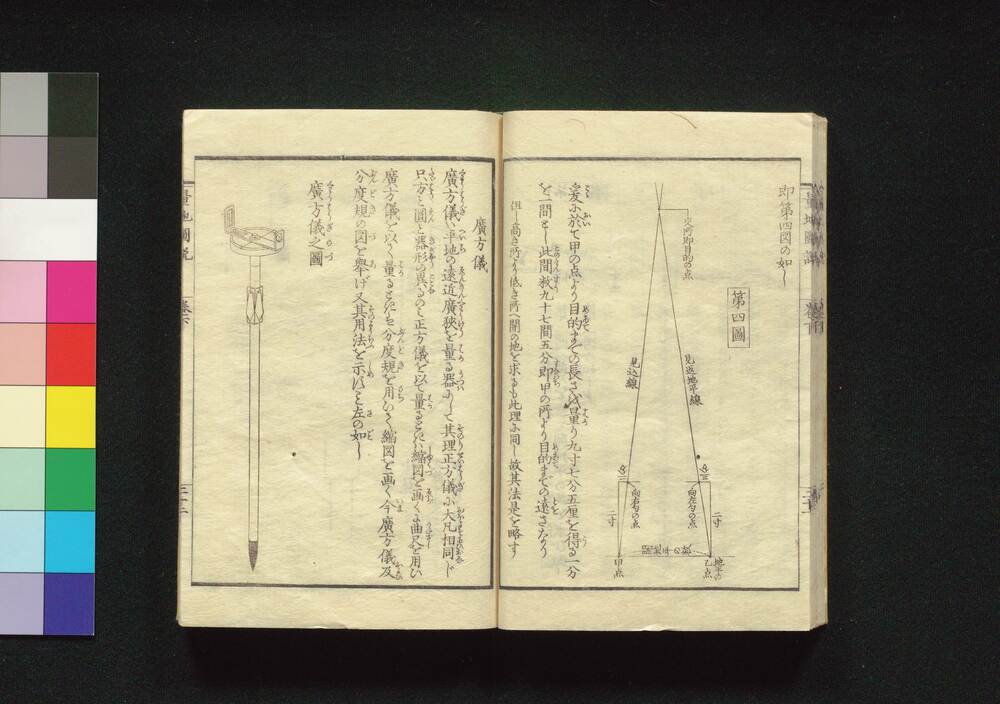 即第四図の如し
第四圖
交所即目的の点
見返地平線
見込線
向左勾の点
向右勾の点
二寸
二寸
乙点
甲点
爰に於て甲の点より目的までの長さを量り九寸七分五厘を得る一分
を一間とし此間数九十七間五分即甲の所より目的までの遠さなり
但し高き所より低き所へ開の地を求るも此理に同し故其法是を略す
廣方儀
廣方儀ハ平地の遠近廣狭を量る器にして其理正方儀に大凡相同じ
只方と圓と器形の異るのミ正方儀を以て量るときハ縮図を画くに曲尺を用い
廣方儀を以て量るときハ分度規を用いて縮図を画く今廣方儀及
分度規の図を舉げ又其用法を示すこと左の如し
廣方儀之圖
量地圖説